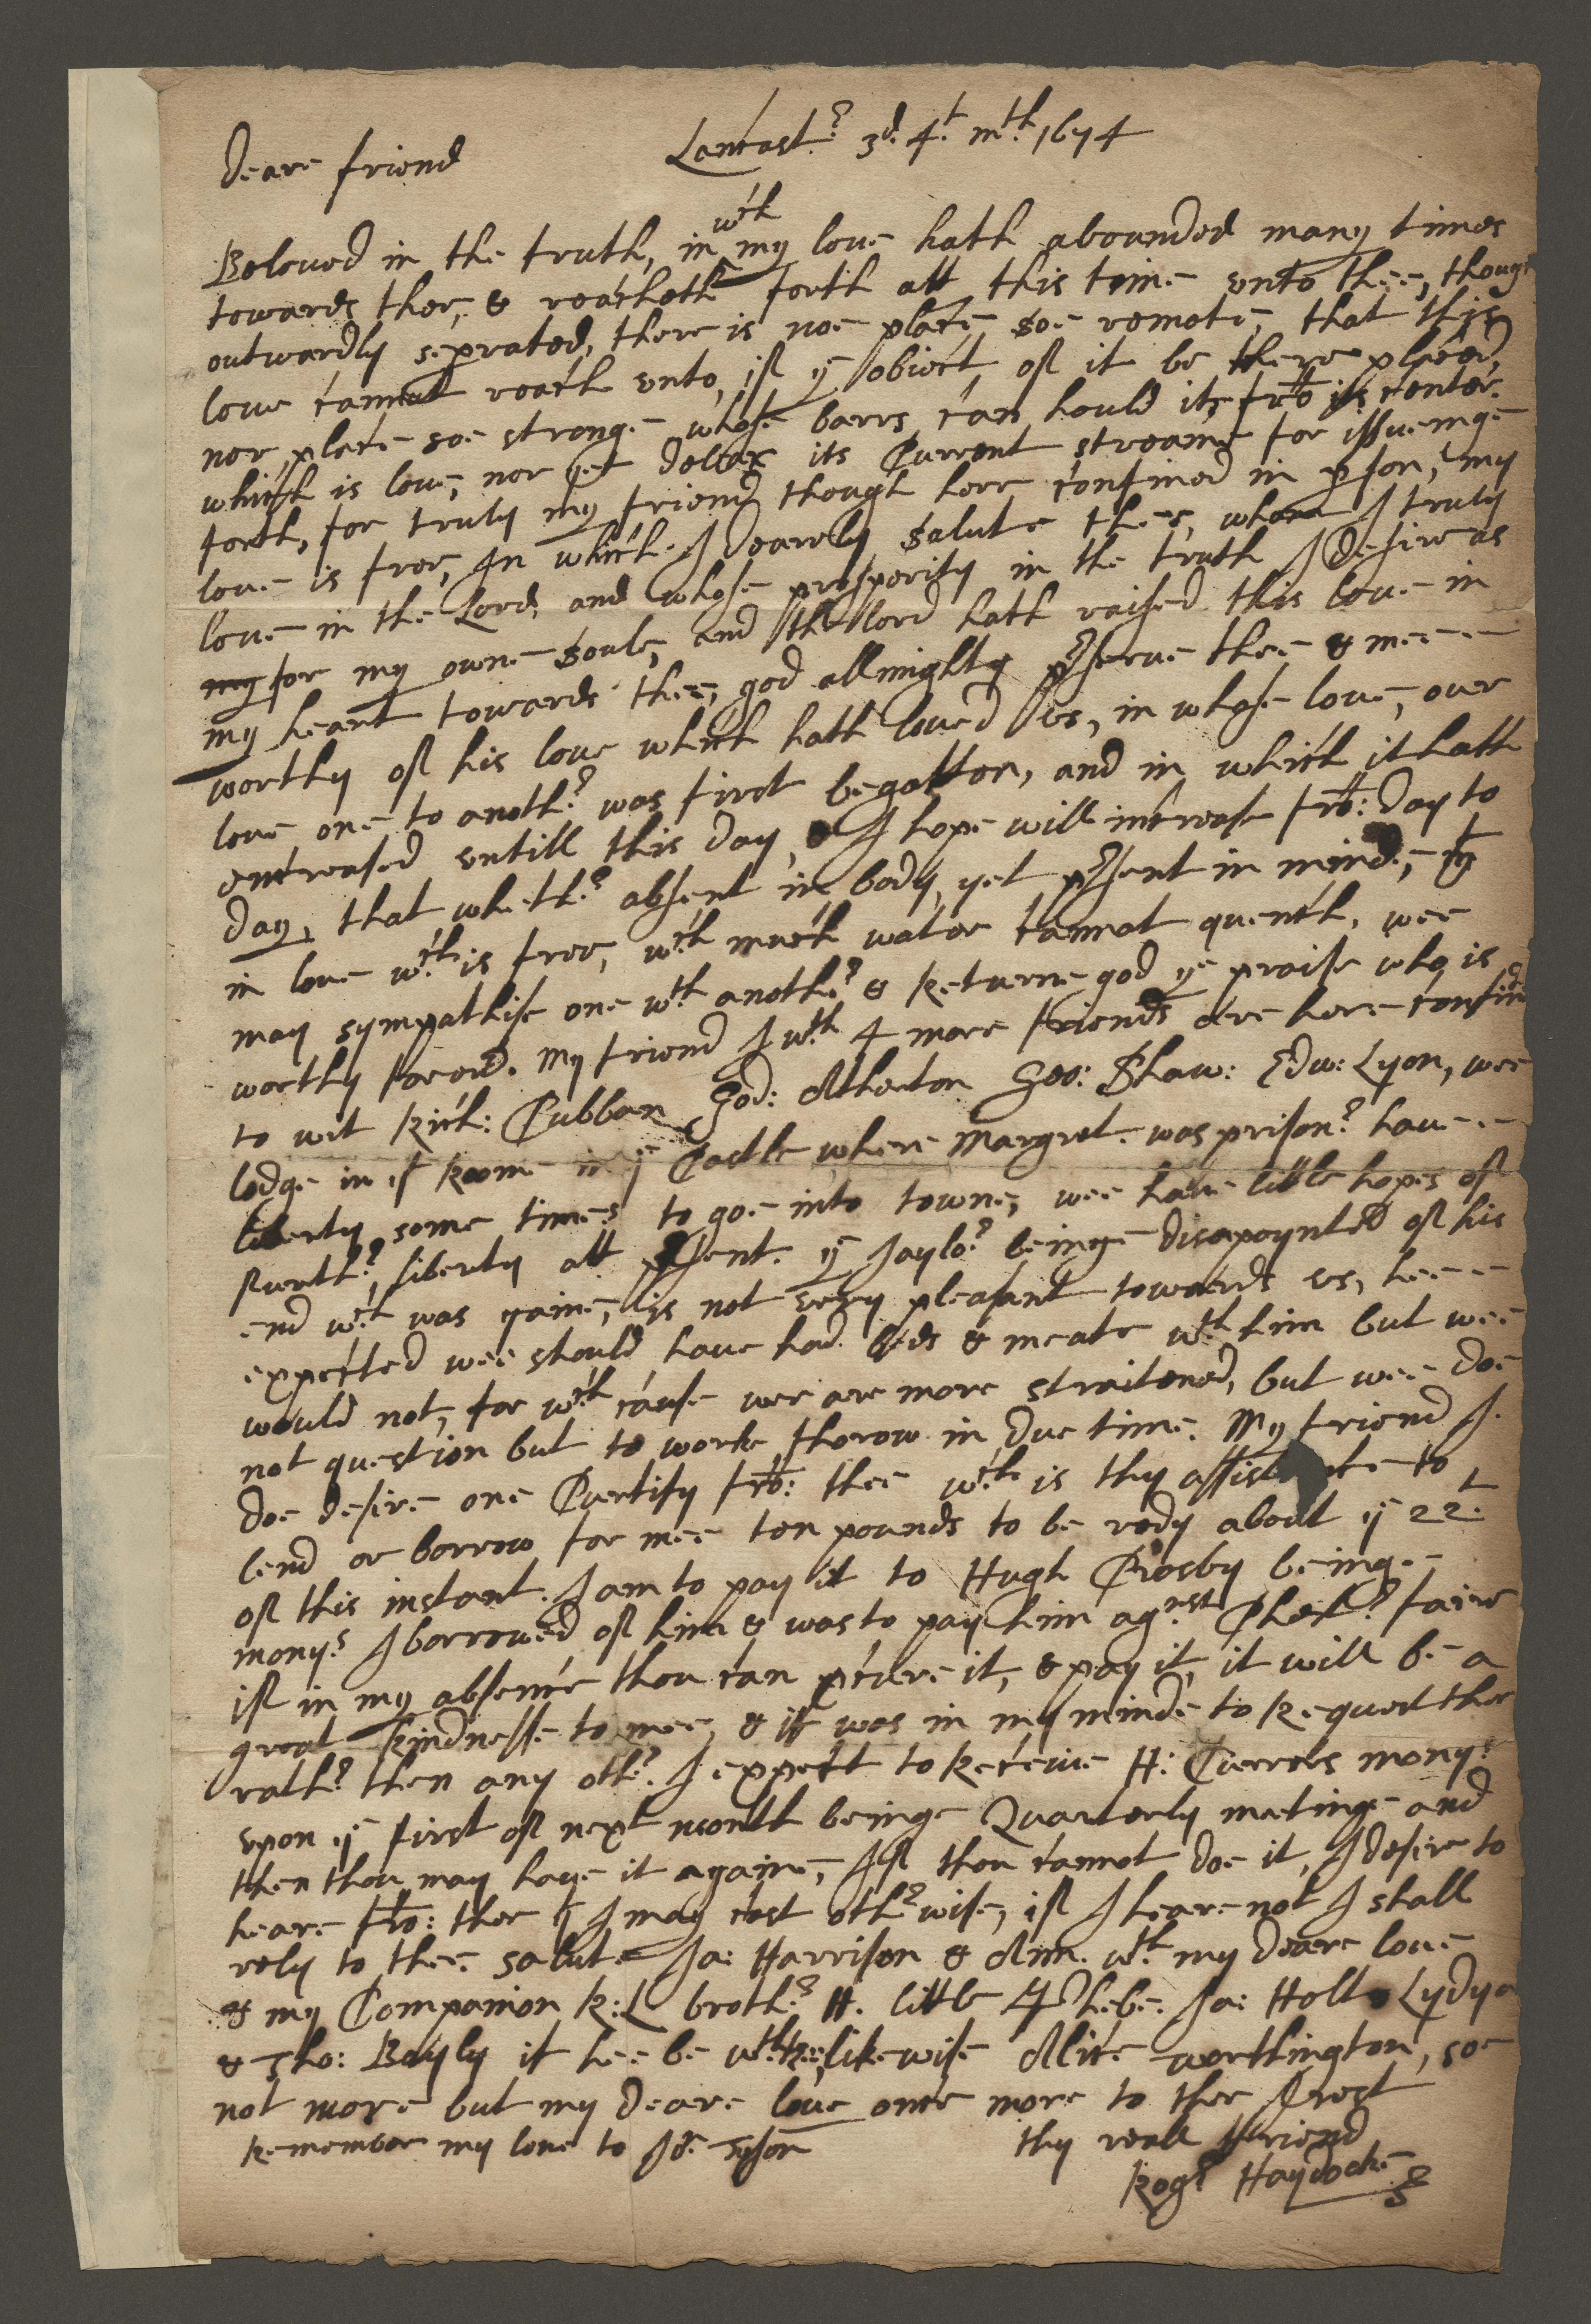 Lancastr 3d. 4t. mth 1674
Deare friend
Beloved in the truth, in wch my love hath abounded many times
towards thee, & reacheth forth att this time unto thee, though
outwardly seprated, there is noe place soe remote, that this
love cannot reach unto, if ye obiect of it be there placed,
nor place soe stronge whose barrs can hould it, fro its center
which is love, nor yet its Current streame for issueinge
forth, for truly my friend though here confined in pson, my
love is free, In which I dearely salute thee, whom I truly
love in the Lord, and whose prosperity in the truth I desire as
my for my owne soule, and the lord hath raised this love in
my heart towards thee, god allmighty pserve thee & mee
worthy of his love which hath loved us, in whose love, our
love one to anothr was first begotten, and in which it hath
encreased untill this day, & I hope will increase fro: day to
day, that whethr absent in body, yet psent in minde, yt
in love wch is free, wch much water cannot quench, wee
may sympathise one wth anothr & Returne god ye praise who is
worthy for evr. My friend I wth 4 more friends are here confind
to wit Rich: Cubban God: Atherton Geo: Shaw: Edw: Lyon, wee
lodge in ye Roome in ye Castle where Margret was prisonr have
liberty some times to goe into towne, wee have little hopes of
furthr liberty att psent. ye Jaylor beinge disapoynted of his
end wch was gaine, is not very pleasant towards us, hee
expected wee should have had beds & meate wth him but wee
would not, for wch cause wee are more straitened, but wee doe
not question but to worke thorow in due time. My friend I
doe desire one Curtisy fro: thee wch is thy to
lend or borrow for mee ten pounds to be redy about ye 22t
of this instant. I am to pay it to Hugh Crosby beinge
monys I borrowed of him & was to pay him agnst faire
if in my absence thou can pcure it, & pay it, it will be a
great kindnesse to mee, & it was in my minde to Request thee
rathr then any othr. I expect to Receive H: monys
upon ye first of next month beinge Quarterly meetinge and
then thou may have it againe, If thou cannot doe it, I desire to
heare fro: thee yt I may cast othrwise, if I heare not I shall
rely to thee. salute Ja: Harrison & Ann wth my deare love
& my Companion R:L brothr H. little Phebe. Ja: Holt Lydya
& Tho: Bayly if hee be wth thee, likewise Alice worthington, soe
not more but my deare love once more to thee I rest
Remember my love to thy reall ffriend
Rogr Haydocke